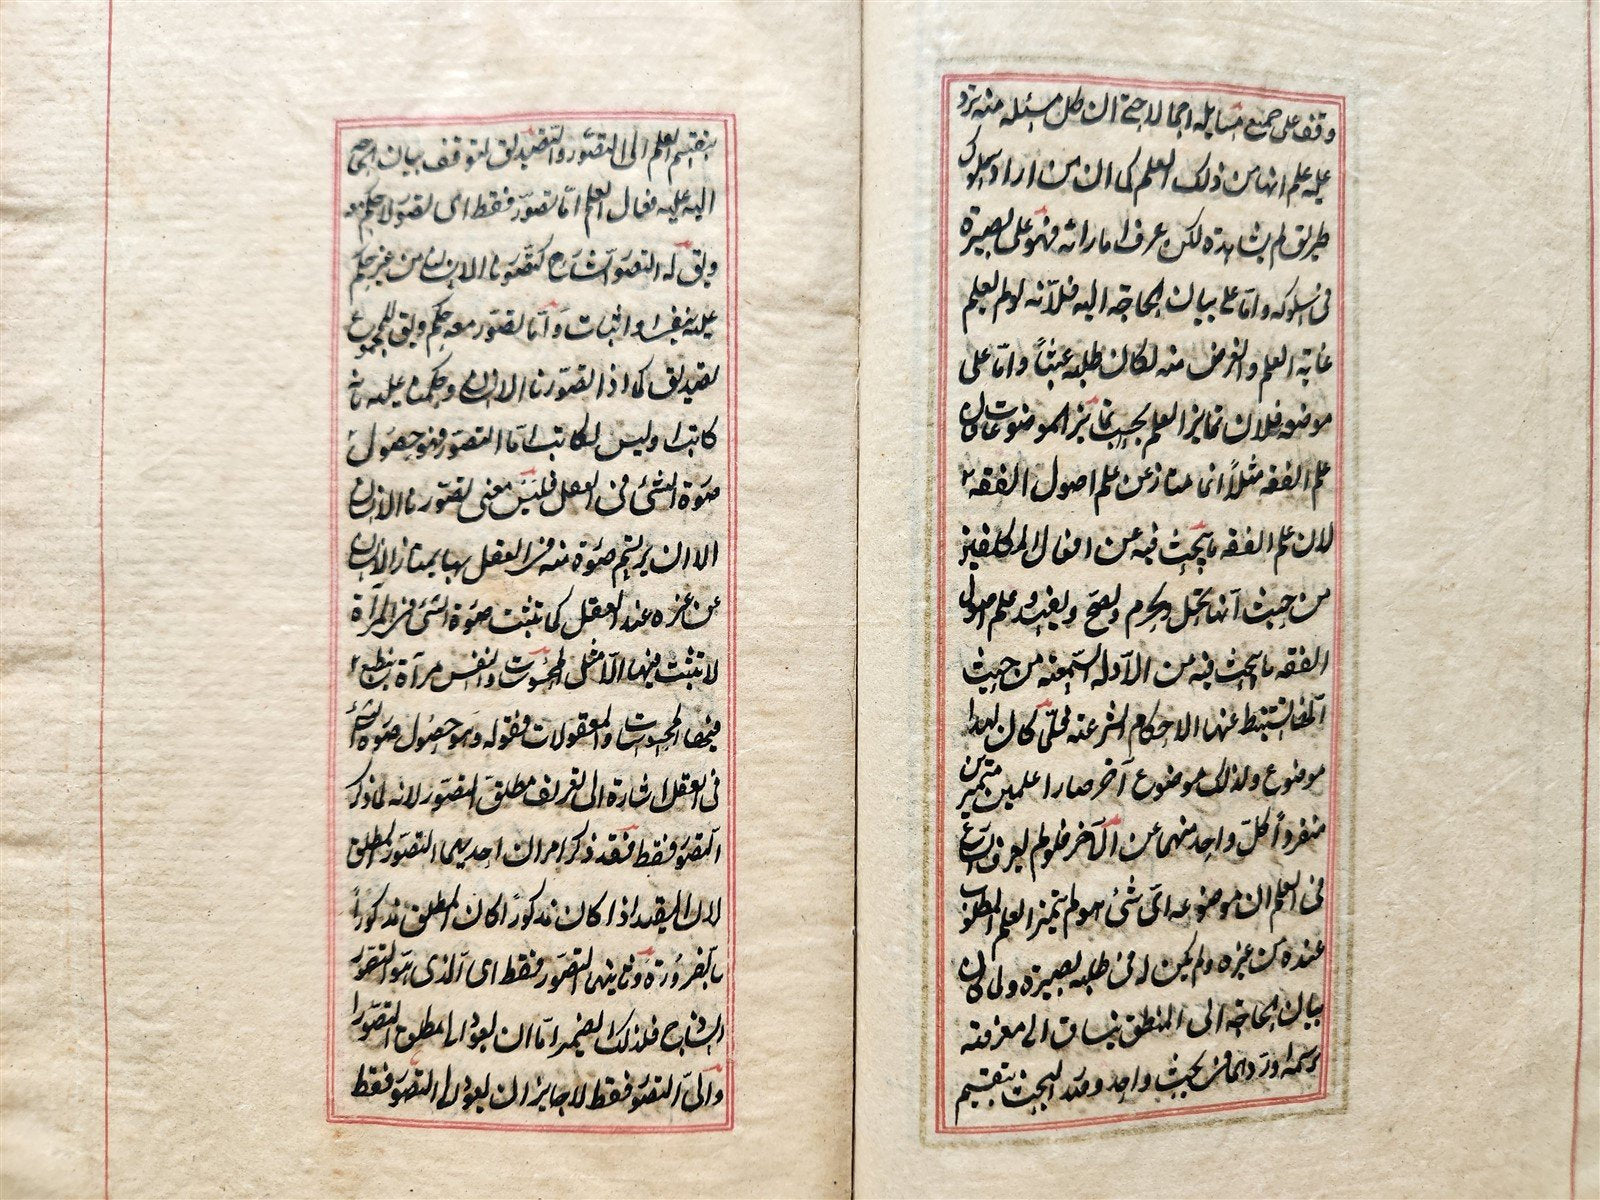 وقف على جميع مسايله اجمالا حتى ان كل مسئله منه ترد
عليه علم انها من ذلك العلم كما ان من اراد سلوك
طريق لم يشاهده لكن عرف اماراته فهو على بصيرة
فى سلوكه واما على بيان الحاجة اليه فلانّه لو لم يعلم
غاية العلم والغرض منه لكان طلبه عبثاً وامّا على
موضوعه فلان تمايز العلم بحسب تمايز الموضوعات فان
علم الفقه مثلاً انما يمتاز عن علم اصول الفقه
لان علم الفقه يبحث فيه عن افعال المكلفين
من حيث انّها تحلّ وتحرم وتصحّ وتفسد وعلم اصول
الفقه يبحث فيه عن الادلّه السّمعيّه من حيث
انّها تستنبط عنها الاحكام الشرعيه فلمّا كان لهذا
موضوع ولذلك موضوع آخر صارا علمين متميزين
منفرداً كلّ واحد منهما عن الآخر فلو لم يعرف الشارع
فى العلم ان موضوعه اىّ شئ هو لم يتميز العلم المطلوب
عنده عن غيره ولم يكن له فى طلبه بصيرة ولما كان
بيان الحاجة الى المنطق ينساق الى معرفته
برسمه اوردهما فى بحث واحد وصدر البحث بتقسيم
بتقسيم العلم الى التصوّر والتصديق لتوقف بيان الحاجة
اليه عليه فقال العلم امّا تصوّر فقط اى تصوّر لا حكم معه
ويق له التصوّر الساذج كتصوّرنا الانسان من غير حكم
عليه بنفى او اثبات وامّا تصوّر معه حكم ويق للمجموع
تصديق كما اذا تصوّرنا الانسان وحكمنا عليه بانه
كاتب او ليس بكاتب امّا التصوّر فهو حصول
صورة الشئ فى العقل فليس معنى تصوّرنا الانسان
الا ان يرتسم صورة منه فى العقل بها يمتاز الانسان
عن غيره عند العقل كما تثبت صورة الشئ فى المرآة
لا تثبت فيها الّا مثل المحسوسات والنفس مرآة ينطبع
فيها مثل المحسوسات والمعقولات فقوله وهو حصول صورة الشئ
فى العقل اشارة الى تعريف مطلق التصوّر لانه لما ذكر
التصوّر فقط فقد ذكر امران احديهما التصوّر المطلق
لان المقيد اذا كان مذكوراً كان المطلق مذكوراً
بالضرورة وثانيهما التصوّر فقط اى الّذى هو التصوّر
الساذج فذلك الضمير امّا ان يعود الى مطلق التصوّر
او الى التصوّر فقط لا جايز ان يعود الى التصوّر فقط